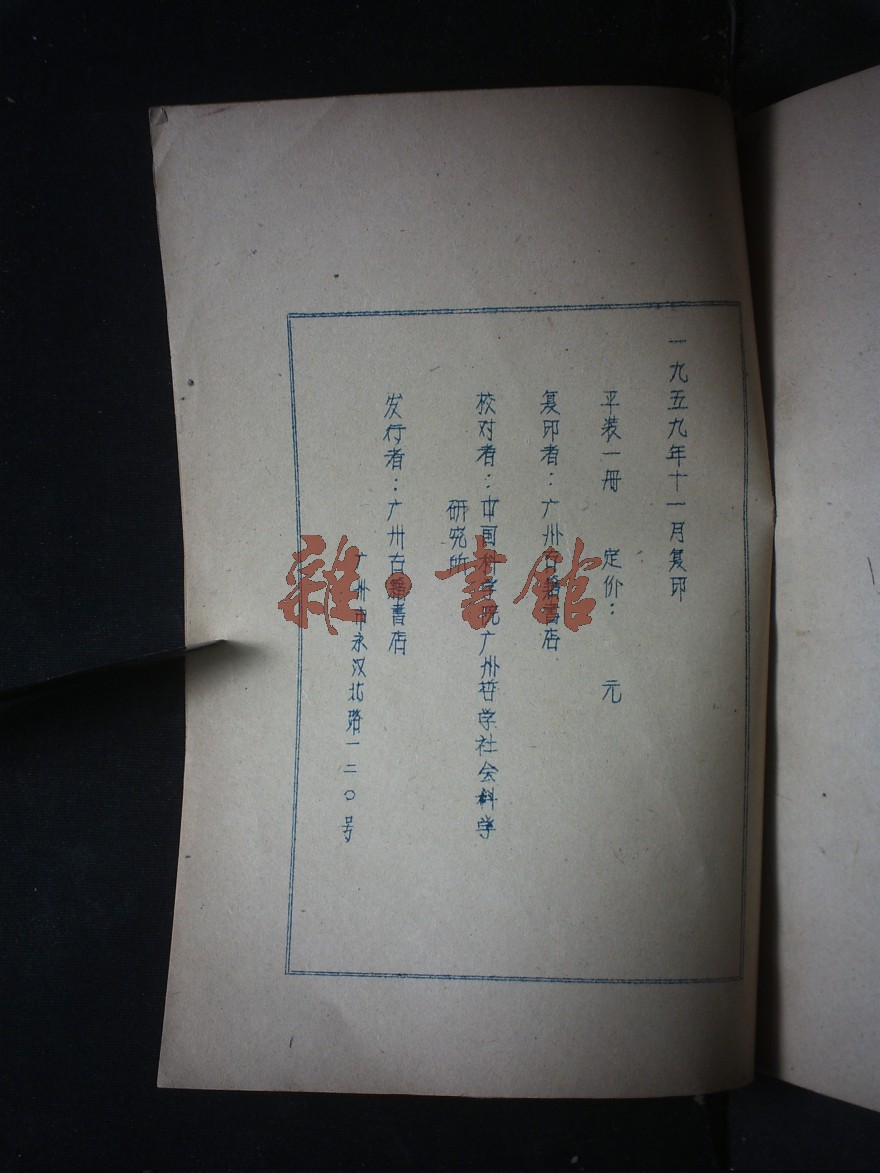 一九五九年十一月复印
平装一册 定价： 元
复印者：广州古籍书店
校对者：中国科学院广州哲学社会科学
研究所
发行者：广州古籍书店
广州市永汉北路一二〇号
雜·書館